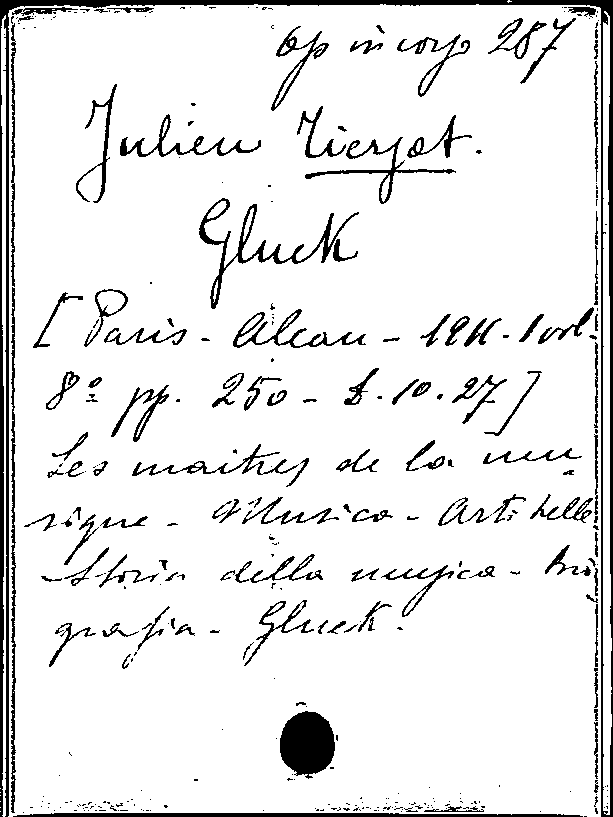 op in corp 287
Julien Tiersot.
Gluck
[Paris - Alcan - 1911. 1 vol.
8º pp. 250 - £. 10.27]
Les maitres de la mu-
sique - Musica - Arti belle
- Storia della musica - bio-
grafia - Gluck.